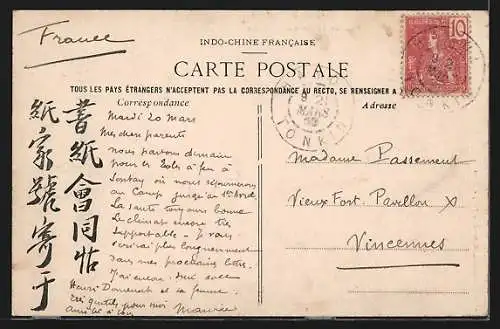 France
INDO-CHINE FRANÇAISE
CARTE POSTALE
TOUS LES PAYS ÉTRANGERS N'ACCEPTENT PAS LA CORRESPONDANCE AU RECTO, SE RENSEIGNER A
Correspondance
Adresse
10
TONKIN
MARS
Mardi 20 Mars
Mes chers parents
nous partons demain
pour
Sontay où nous séjournerons
au Camp jusqu'au
La santé toujours bonne
Le climat encore très
supportable - Je vous
écrirai plus longuement
dans mes prochaines lettres.
J'ai encore
Henri et sa femme.
très gentils pour moi
Maurice
書紙會同帖
紙家號寄于
Madame Passement
Vieux Fort. Pavillon X
Vincennes